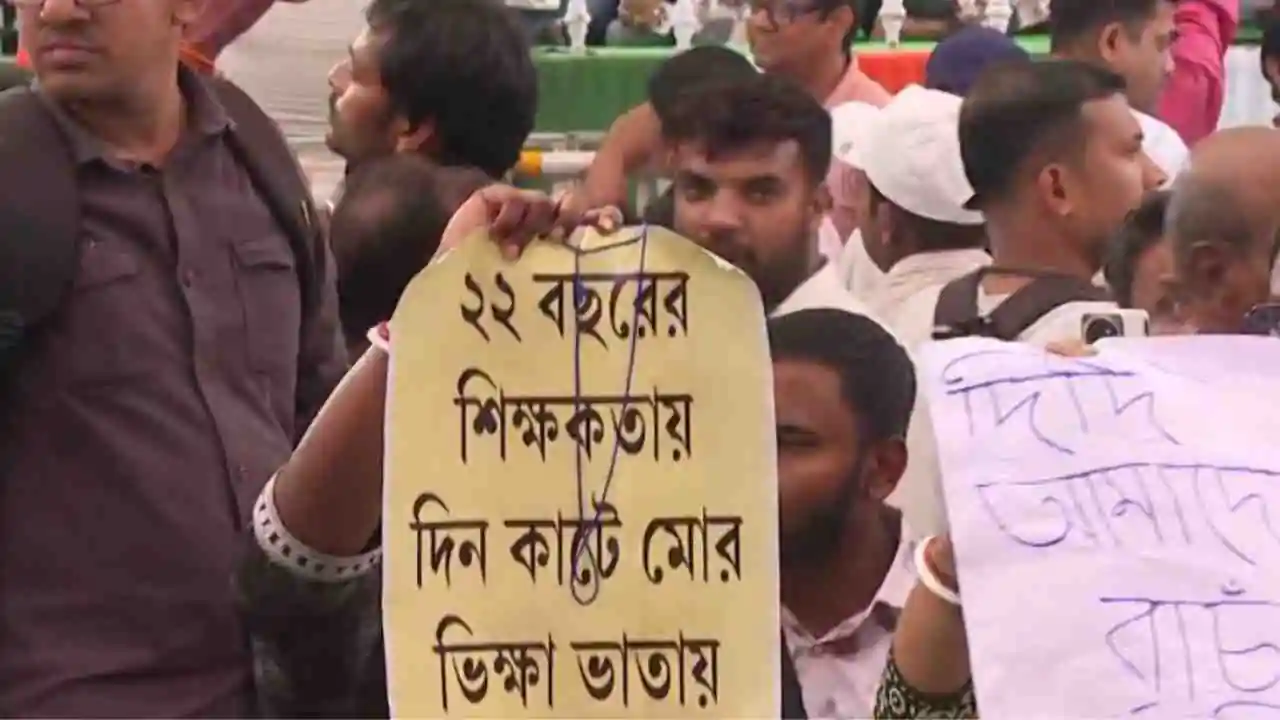 ২২ বছরের
শিক্ষকতায়
দিন কাটে মোর
ভিক্ষা ভাতায়
দিদি
আমাদে
বাঁচ